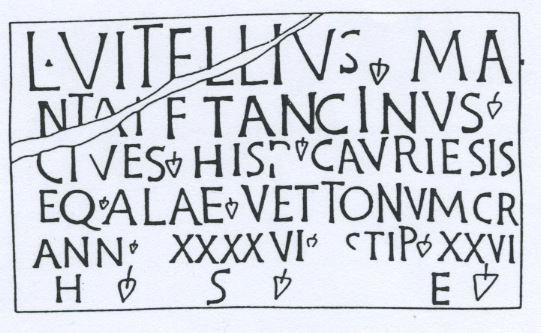 L·VITELLIVS MA
NTAI F TANCINVS
CIVES HISP CAVRIESIS
EQ ALAE VETTONVM CR
ANN XXXXVI STIP XXVI
H S E